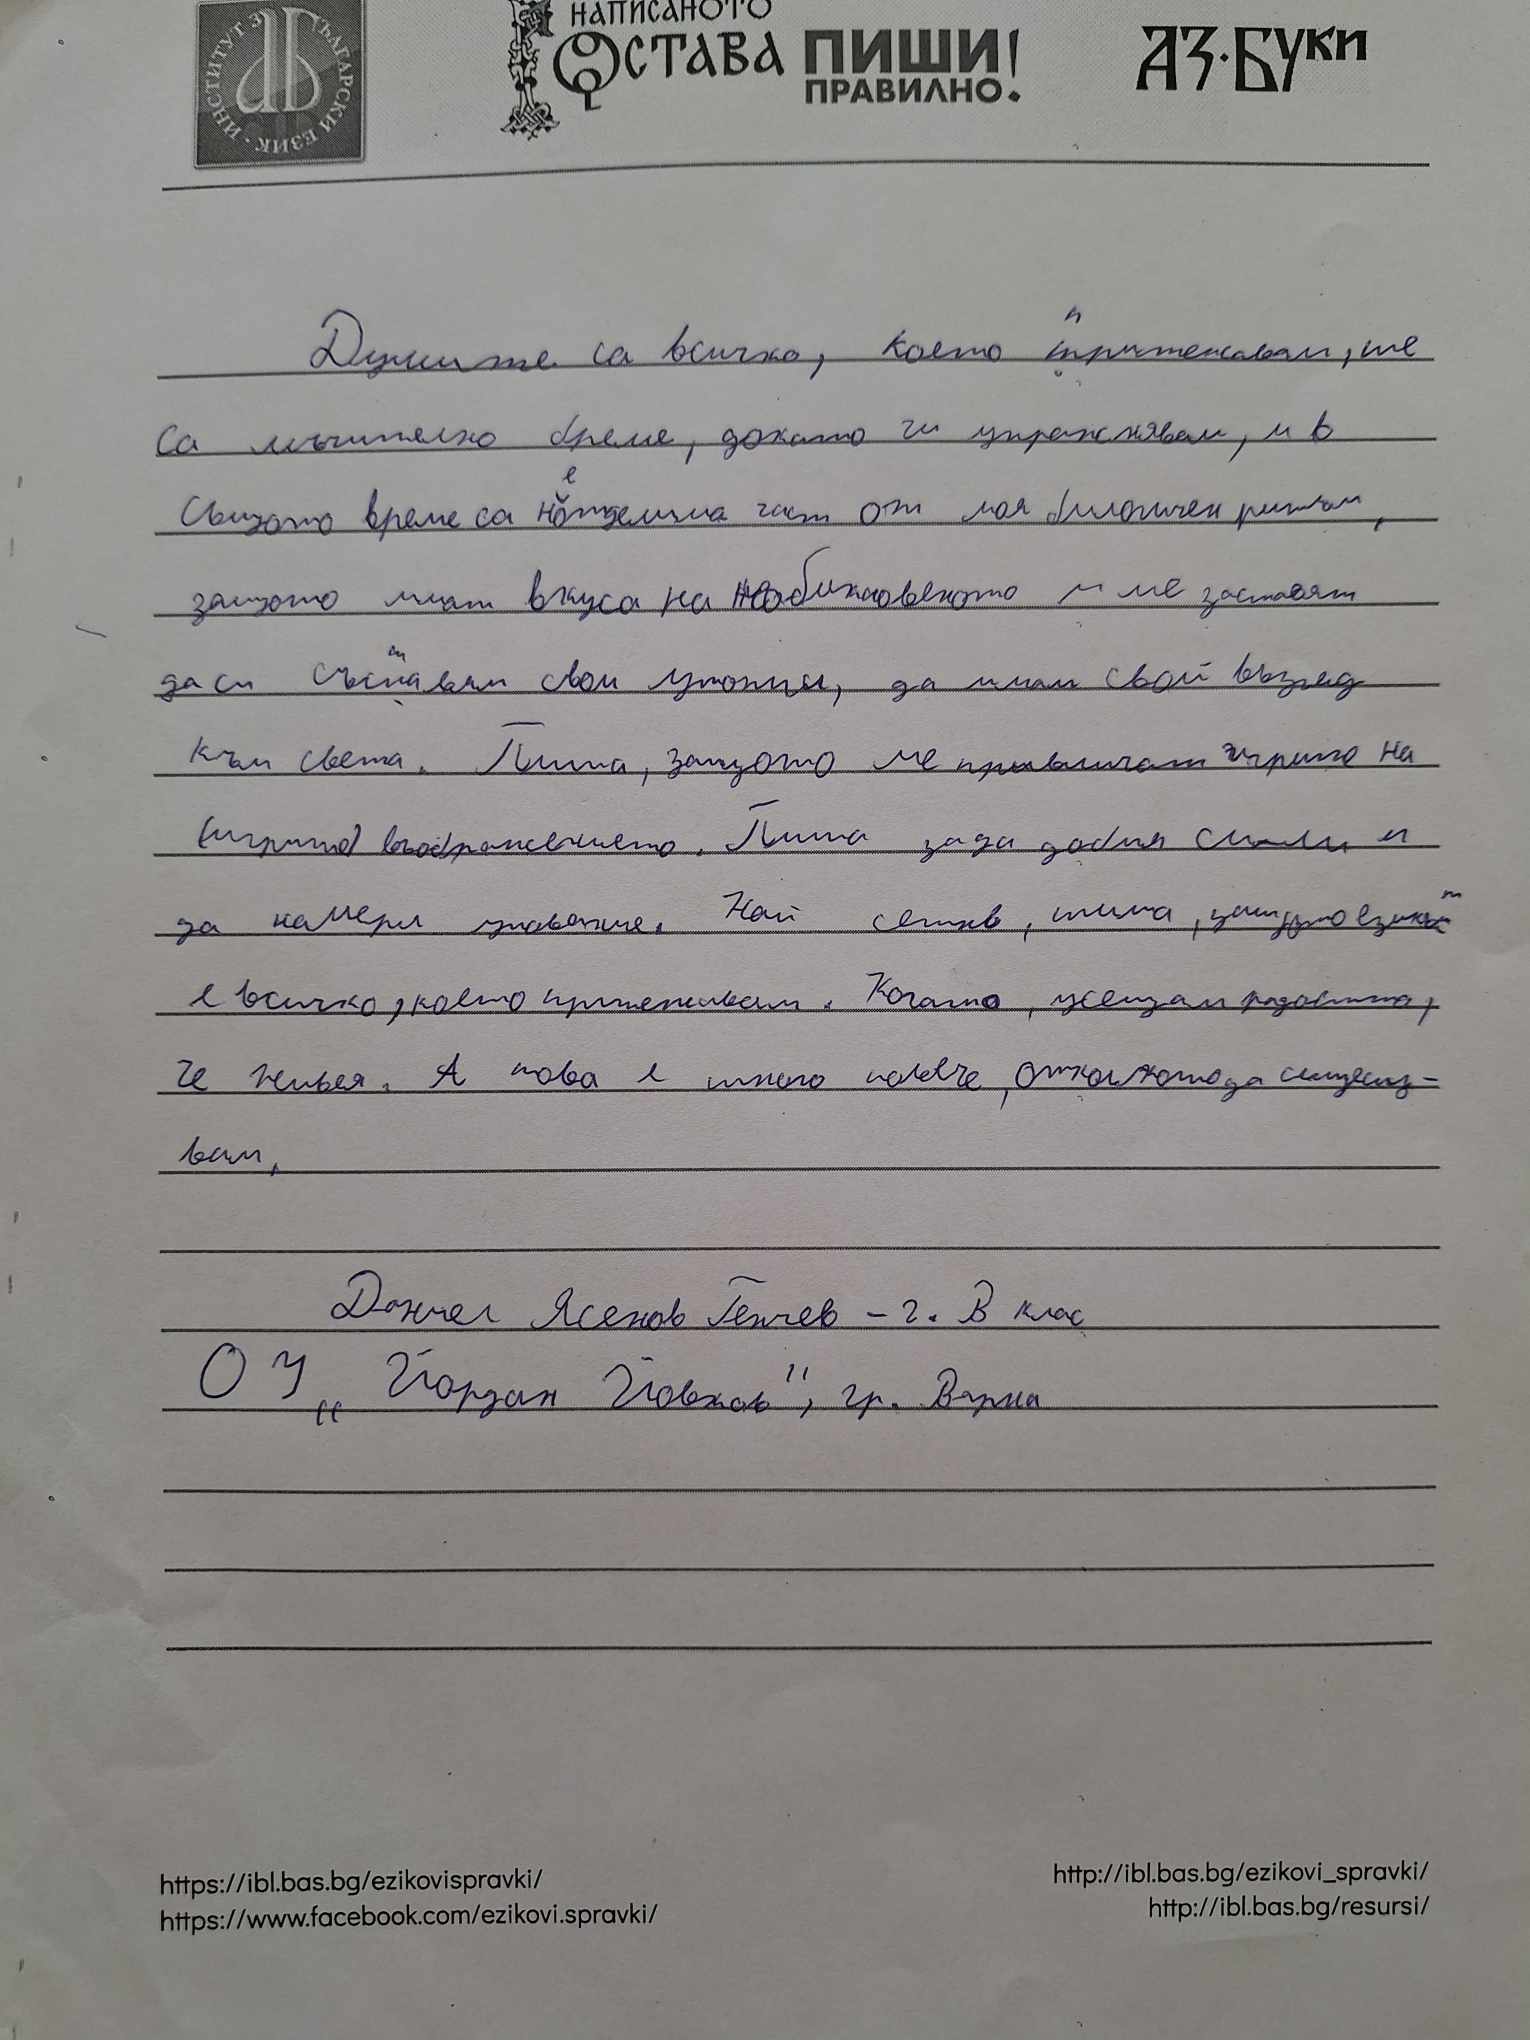 ИНСТИТУТ ЗА БЪЛГАРСКИ ЕЗИК
НАПИСАНОТО
ОСТАВА ПИШИ
ПРАВИЛНО!
АЗ·БУКИ
Думите са всичко, което притежавам, те
са мъчително бреме, докато ги упражнявам, и в
същото време са неотделима част от моя биологичен ритъм,
защото имат вкуса на необикновеното и ме заставят
да си съставям свои утопии, да имам свой възглед
към света. Пиша, защото ме привличат игрите на
(игрите) въображението. Пиша за да добия смисли и
да намеря упование. Най сетне, пиша, защото езикът
е всичко, което притежавам. Когато, усещам радостта,
че живея. А това е много повече, отколкото да съществу-
вам.
Даниел Ясенов Генчев – 7. В клас
ОУ „Йордан Йовков", гр. Варна
https://ibl.bas.bg/ezikovispravki/
https://www.facebook.com/ezikovi.spravki/
http://ibl.bas.bg/ezikovi_spravki/
http://ibl.bas.bg/resursi/